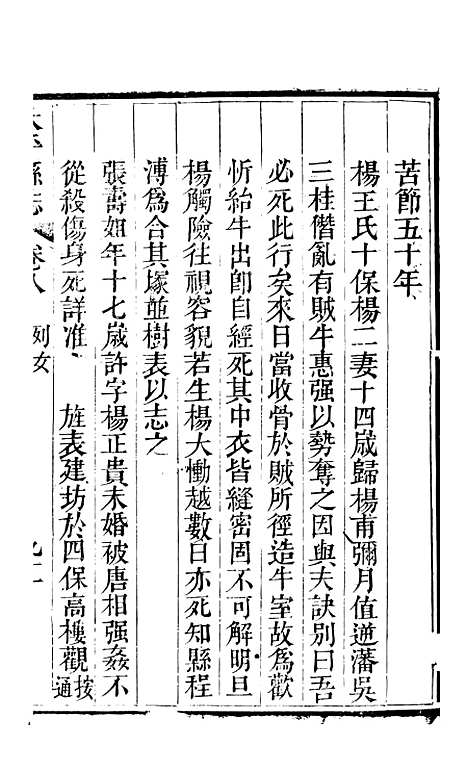 苦節五十年
楊王氏十保楊二妻十四歲歸楊甫彌月值逆藩吳
三桂僭亂有賊牛惠强以勢奪之因與夫訣別曰吾
必死此行矣來日當收骨於賊所徑造牛室故爲歡
忻紿牛出卽自經死其中衣皆縫密固不可解明旦
楊觸險往視容貌若生楊大慟越數日亦死知縣程
溥爲合其塚並樹表以志之
張壽姐年十七歲許字楊正貴未婚被唐相强姦不
從殺傷身死詳准 旌表建坊於四保高樓觀按通
縣志 卷八 列女